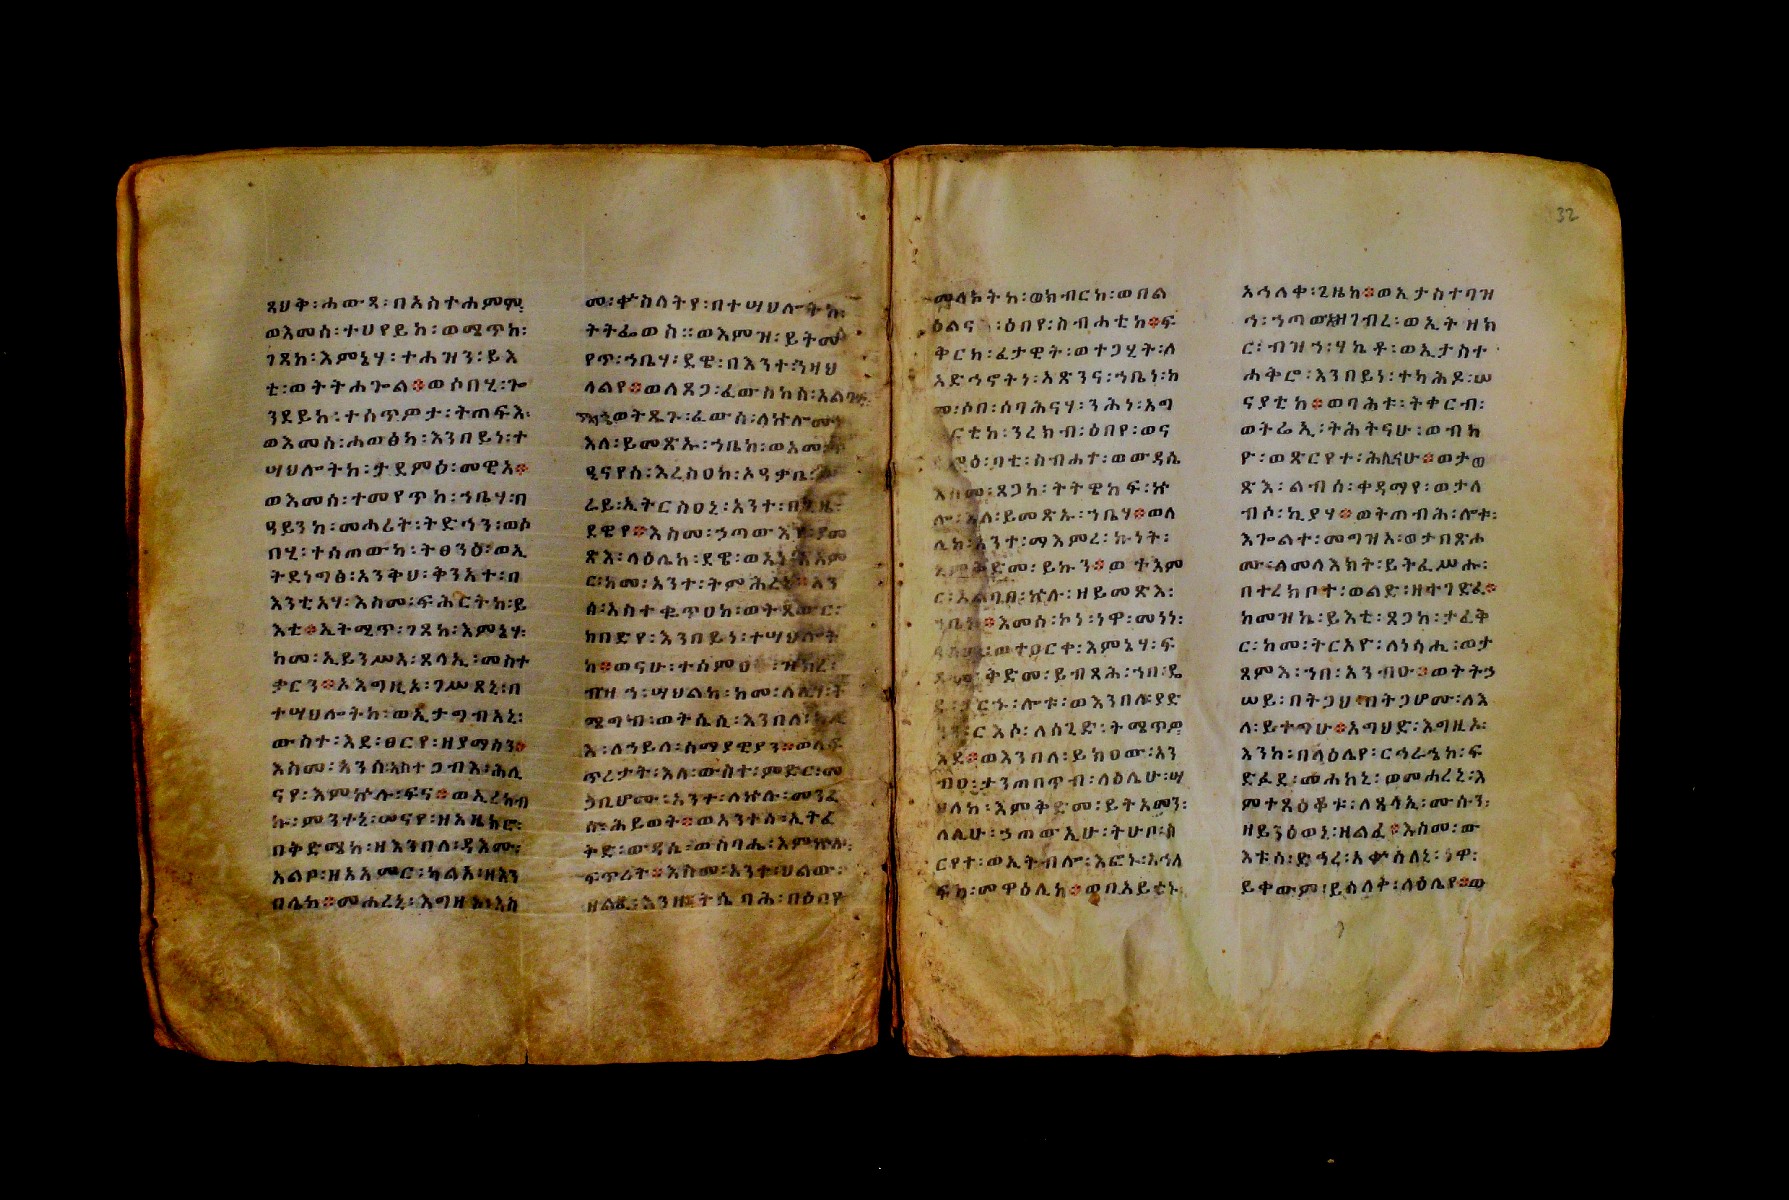 ጻህቅ፡ሐውጻ፡በአስተሐምሞ፤
ወእመሰ፡ተሀየይከ፡ወሜጥከ፡
ገጸከ፡እምኔሃ፡ተሐዝን፡ይእ
ቲ፡ወትትሐጐል፨ወሶበሂ፡ጐ
ንደይከ፡ተሰጥዎታ፡ትጠፍእ፡
ወእመሰ፡ሐወፅካ፡እንበይነ፡ተ
ሣህሎትከ፡ታደምዕ፡መዊአ፨
ወእመሰ፡ተመየጥከ፡ኀቤሃ፡በ
ዓይንከ፡መሓሪት፡ትድኅን፡ወሶ
በሂ፡ተሰጠውካ፡ትፀንዕ፡ወኢ
ትደነግፅ፡አንቅሀ፡ቅንአተ፡በ
እንቲአሃ፡እስመ፡ፍሕርትከ፡ይ
እቲ፨ኢትሚጥ፡ገጸከ፡እምኔሃ፡
ከመ፡ኢይንሥአ፡ጸላኢ፡መስተ
ቃርን፨ኦእግዚኦ፡ገሥጸኒ፡በ
ተሣህሎትከ፡ወኢታግብአኒ፡
ውስተ፡እደ፡ፀርየ፡ዘያማስን፨
እስመ፡አንሰ፡አስተጋብእ፡ሕሊ
ናየ፡እምኵሉ፡ፍና፨ወኢረከብ
ኩ፡ምንተኒ፡ሠናየ፡ዘአዜክሮ፡
በቅድሜከ፡ዘእንበለ፡ዳእሙ፡
አልቦ፡ዘአአምር፡ካልአ፡ዘእን
በሌከ፨መሐረኒ፡እግዚኦ፡እስ
መ፡ቍስለትየ፡በተሣህሎትከ፡
ትትፌወስ፡፡ወእምዝ፡ይትመ
የጥ፡ኀቤሃ፡ደዌ፡በእንተ፡ኀዛህ
ላልየ፨ወለጸጋ፡ፈውስከሰ፡አልቦ
ወትጼጉ፡ፈውሰ፡ለኵሎሙ፡
እለ፡ይመጽኡ፡ኀቤከ፡ወአመ
ዲናየሰ፡እረስዐከ፡ኦዳቃቤ
ራይ፡ኢትርስዐኒ፡አንተ፡በጊዜ፡
ደዌየ፨እስመ፡ኃጣውእየ፡ያመ
ጽእ፡ላዕሌከ፡ደዌ፡ወአነ፡አአም
ር፡ከመ፡አንተ፡ትምሕረኒ፨አን
ሰ፡አስተቈጥዐከ፡ወትጸውር፡
ክበድየ፡እንበይነ፡ተሣህሎት
ከ፨ወናሁ፡ተሰምዐ ዝክረ፡
ብዝኀ፡ሣህልከ፡ከመ፡ለሊሃ፡ት
ሜግብ፡ወትሴሲ፡እንበለ፡
እ፡ለኀይለ፡ሰማያዊያን፨ወለፍ
ጥረታት፡እለ፡ውስተ፡ምድር፡መ
ጋቢሆሙ፡አንተ፡ለኵሉ፡መንፈ
ሰ፡ሕይወት፨ወአንተሰ፡ኢትፈ
ቅድ፡ውዳሴ፡ወስባሔ፡እምኵሉ፡
ፍጥረት፨እስመ፡አንተ፡ህልው፡
ዘልፈ፡እንዘ፡ትሴባሕ፡በዕበየ
መላኮትከ፡ወክብርከ፡ወበል
ዕልና ፡ዕበየ፡ስብሐቲከ፨ፍ
ቅርከ፡ፈታዊት፡ወተጋሂት፡ለ
አድኅኖትነ፡አጽንና፡ኀቤነ፡ከ
መ፡ሶበ፡ሰባሕናሃ፡ንሕነ፡አግ
ርቲከ፡ንረክብ፡ዕበየ፡ወና
ባቲ፡ስብሐተ፡ወውዳሴ
እስመ፡ጸጋከ፡ትትዌከፍ፡ኵ
ሎ፡እለ፡ይመጽኡ፡ኀቤሃ፨ወለ
ሊከ፡አንተ፡ማእምረ፡ኩነት፡
እምቅድመ፡ይኩን፨ወተአም
ር፡አልባበ፡ኵሉ፡ዘይመጽእ፡
ኀቤከ፨እመሰ፡ኮነ፡ነዋ፡መነነ፡
ወተዐርቀ፡እምኔሃ፡ፍ
ጹመ፡ቅድመ፡ይብጻሕ፡ኀበ፡ዴ
ደ፡ሎቱ፡ወእንበለ፡ያድ
ርእሶ፡ለሰጊድ፡ትሜጥዎ
እደ፨ወእንበለ፡ይክዐው፡አን
ብዐ፡ታንጠበጥብ፡ላዕሌሁ፡ሣ
ህለከ፡እምቅድመ፡ይትአመን፡
ለሊሁ፡ኃጠውኢሁ፡ትሁቦ፡ስ
ርየተ፡ወኢትብሎ፡እፎኑ፡አኅለ
ፍከ፡መዋዕሊከ፨ወበአይቴኑ፡
አኅለቀ፡ጊዜከ፨ወኢታስተባዝ
ኅ፡ኀጣውእ፡ዘገብረ፡ወኢትዘክ
ር፡ብዝኀ፡ሃኬቶ፡ወኢታስተ
ሐቅሮ፡እንበይነ፡ተካሕዶ፡ሠ
ናያቲከ፨ወባሕቱ፡ትቀርብ፡
ወትሬኢ፡ትሕትናሁ፡ወብካ
ዮ፡ወጽርየተ፡ሕሊናሁ፨ወታወ
ጽእ፡ልብሰ፡ቀዳማየ፡ወታለ
ብሶ፡ኪያሃ፨ወትጠብሕ፡ሎቱ፡
እጐልተ፡መግዝአ፡ወታበጽሖ
ሙ፡ለመላእክት፡ይትፈሥሑ፡
በተረክቦተ፡ወልድ፡ዘተገድፈ፨
ከመዝኬ፡ይእቲ፡ጸጋከ፡ታፈቅ
ር፡ከመ፡ትርአዮ፡ለነሳሒ፡ወታ
ጸምእ፡ኀበ፡አንብዑ፨ወትትኃ
ሠይ፡በትጋህ፡በትጋሆሙ፡ለእ
ለ፡ይተግሁ፨አግህድ፡እግዚኦ፡
እንከ፡በላዕሌየ፡ርኅራኄከ፡ፍ
ድፈደ፡መሐከኒ፡ወመሐረኒ፡እ
ምተጸዕቆቱ፡ለጸላኢ፡ሙሱን፡
ዘይንዕወኒ፡ዘልፈ፨እስመ፡ው
እቱሰ፡ድኅረ፡አቍሰለኒ፡ነዋ፡
ይቀውም፡ይሳለቅ፡ላዕሌየ፨ወ
32